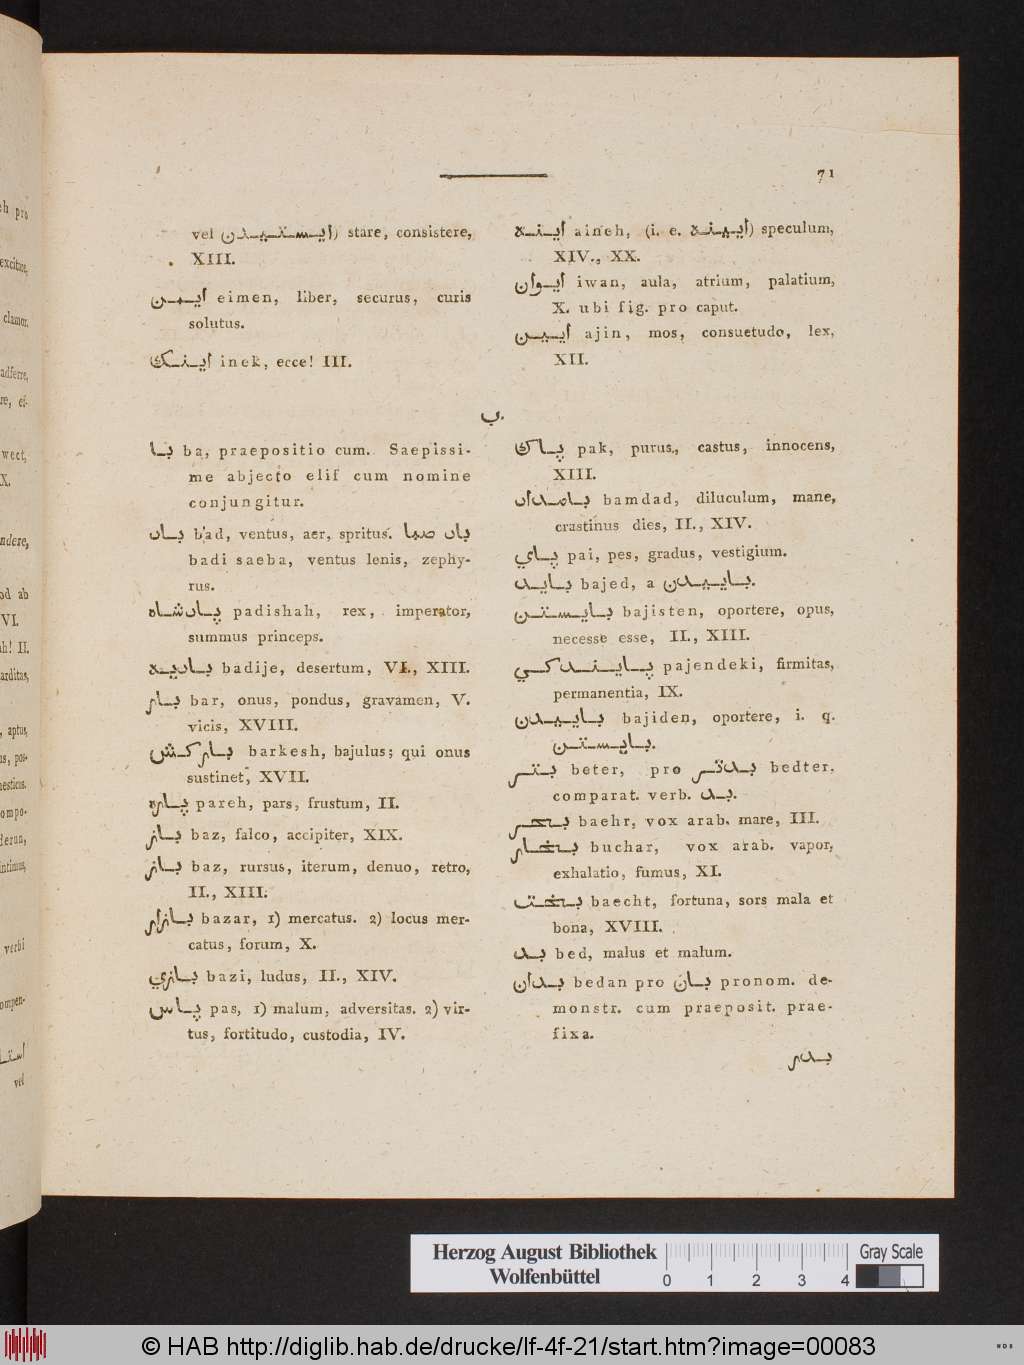 71
vel ایستیدن) stare, consistere,
XIII.
ایمن eimen, liber, securus, curis
solutus.
اینک inek, ecce! III.
اینه aineh, (i. e. ایینه) speculum,
XIV., XX.
ایوان iwan, aula, atrium, palatium,
X. ubi fig. pro caput.
ایین ajin, mos, consuetudo, lex,
XII.
ب.
با ba, praepositio cum. Saepissi-
me abjecto elif cum nomine
conjungitur.
باد bad, ventus, aer, spritus. باد صبا
badi saeba, ventus lenis, zephy-
rus.
پادشاه padishah, rex, imperator,
summus princeps.
بادیه badije, desertum, VI., XIII.
بار bar, onus, pondus, gravamen, V.
vicis, XVIII.
بارکش barkesh, bajulus; qui onus
sustinet, XVII.
پاره pareh, pars, frustum, II.
باز baz, falco, accipiter, XIX.
باز baz, rursus, iterum, denuo, retro,
II., XIII.
بازار bazar, 1) mercatus. 2) locus mer-
catus, forum, X.
بازي bazi, ludus, II., XIV.
پاس pas, 1) malum, adversitas. 2) vir-
tus, fortitudo, custodia, IV.
پاک pak, purus, castus, innocens,
XIII.
بامداد bamdad, diluculum, mane,
crastinus dies, II., XIV.
پاي pai, pes, gradus, vestigium.
باید bajed, a باییدن.
بایستن bajisten, oportere, opus,
necesse esse, II., XIII.
پایندکي pajendeki, firmitas,
permanentia, IX.
باییدن bajiden, oportere, i. q.
بایستن.
بتر beter, pro بدتر bedter,
comparat. verb. بد.
بحر baehr, vox arab. mare, III.
بخار buchar, vox arab. vapor,
exhalatio, fumus, XI.
بخت baecht, fortuna, sors mala et
bona, XVIII.
بد bed, malus et malum.
بدان bedan pro بان pronom. de-
monstr. cum praeposit. prae-
fixa.
بدر
eh pro
excitare,
clamor,
adferre,
re, ef-
wect,
X.
ndere,
od ab
VI.
ah! II.
arditas,
, aptus,
us, pos-
mesticus.
ompo-
derun,
intimus,
verbi
ompen-
استا
vel
Herzog August Bibliothek
Wolfenbüttel
0 1 2 3 4
Gray Scale
© HAB http://diglib.hab.de/drucke/lf-4f-21/start.htm?image=00083